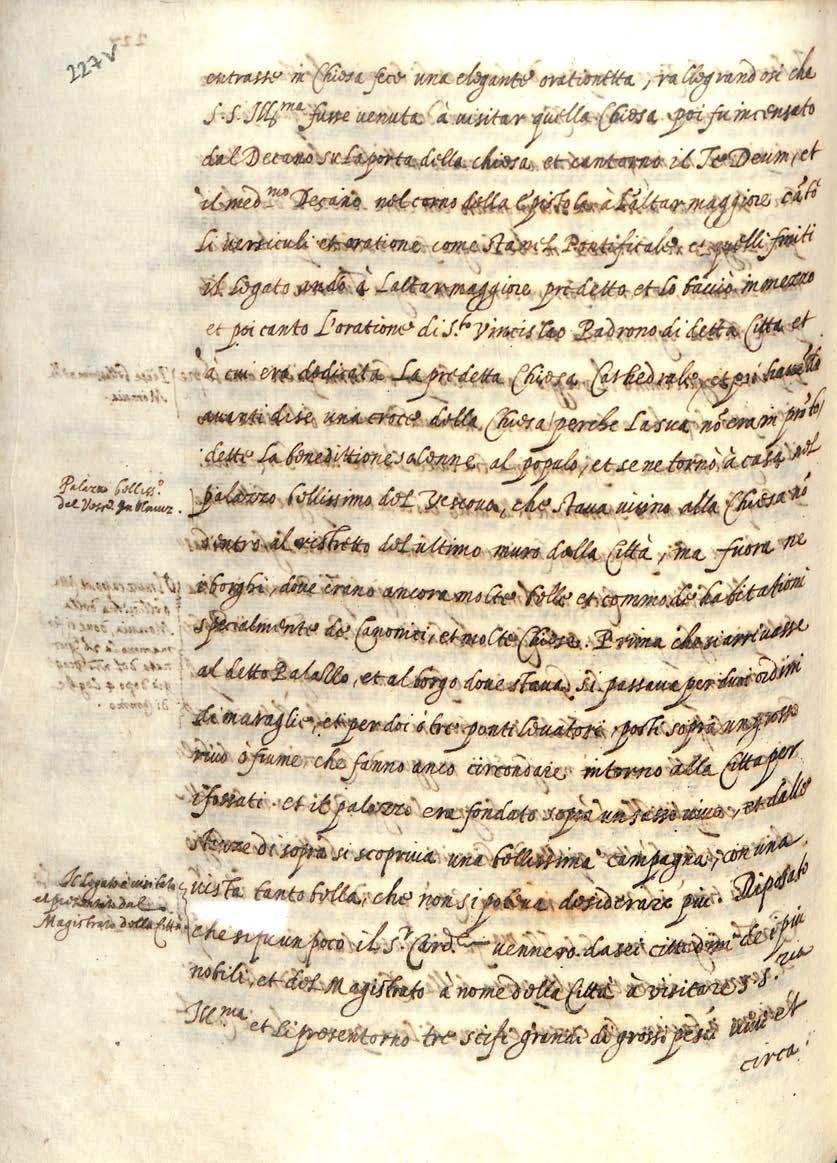 227v
entrasse in Chiesa fece una elegante orationetta, rallegrandosi che
S. S. Ill.ma fusse venuta à visitar quella Chiesa poi fu incensato
dal Decano su la porta della chiesa et cantorno il Te Deum, et
il med.mo Decano nel corno della Epistola à l'altar maggiore cātò
li versiculi et oratione come stà nel Pontificale, et quelli finiti
il legato andò à l'altar maggiore predetto et lo bacciò in mezzo
et poi canto l'oratione di S.to Vincislao Padrono di detta Citta et
à cui era dedicata la predetta Chiesa Cathedrale, et poi
avanti di se una croce della Chiesa (perche la sua nō era in prōto)
dette la benedittione solenne al popolo, et se ne tornò à casa nel
Palazzo belliss.o
del Vesc.o in Olmuz.
palazzo bellissimo del Vescovo, che stava vicino alla Chiesa nō
dentro al ristretto del ultimo muro della Città, ma fuora ne
i borghi, dove erano ancora molte belle et commode habitationi
specialmente de Canonici, et molte Chiese. Prima che si arrivasse
al detto Palazzo, et al borgo dove stava, si passava per duoi ordini
di muraglie, et per doi ò tre ponti levatori, posti sopra un grosso
rivo ò fiume che fanno anco circondare intorno alla Citta per
i fossati. et il palazzo era fondato sopra un sasso vivo, et dalle
stanze di sopra si scopriva una bellissima campagna, con una
Il legato è visitato
et presentato dal
Magistrato della Città
vista tanto bella, che non si poteva desiderare piu. Riposato
che si fu un poco il S.r Card.le vennero da sei cittadini de i piu
nobili, et del Magistrato a nome della Città à visitare S. S.ria
Ill.ma et li presentorno tre scifi grandi di grossi pesci vivi et
circa